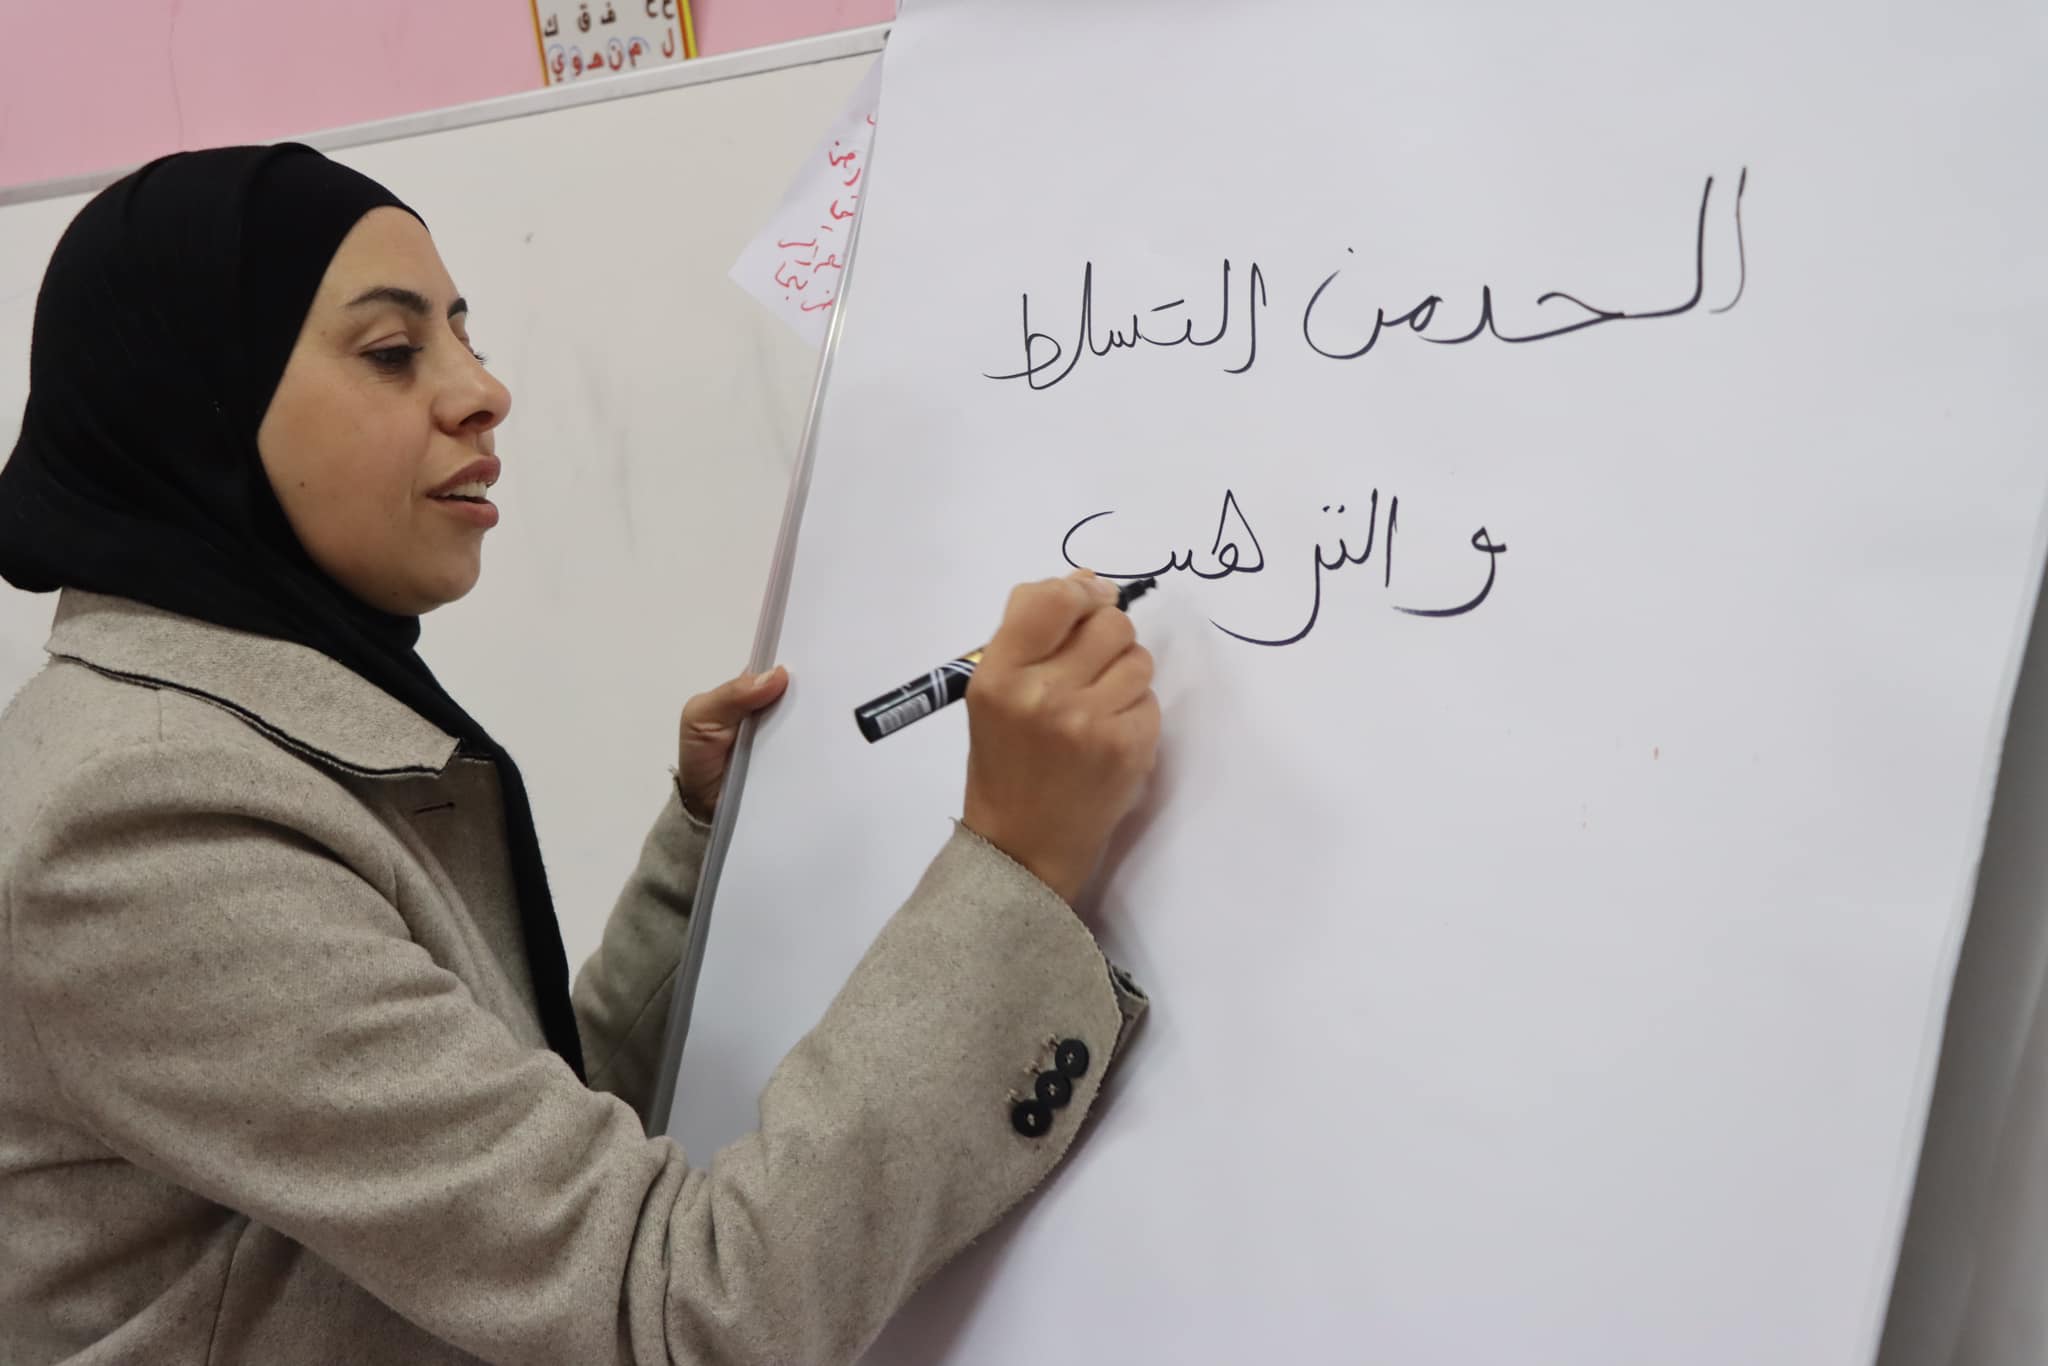 ف ق ك
ل م ن هـ و ي
الحد من التسلط
و الترهيب